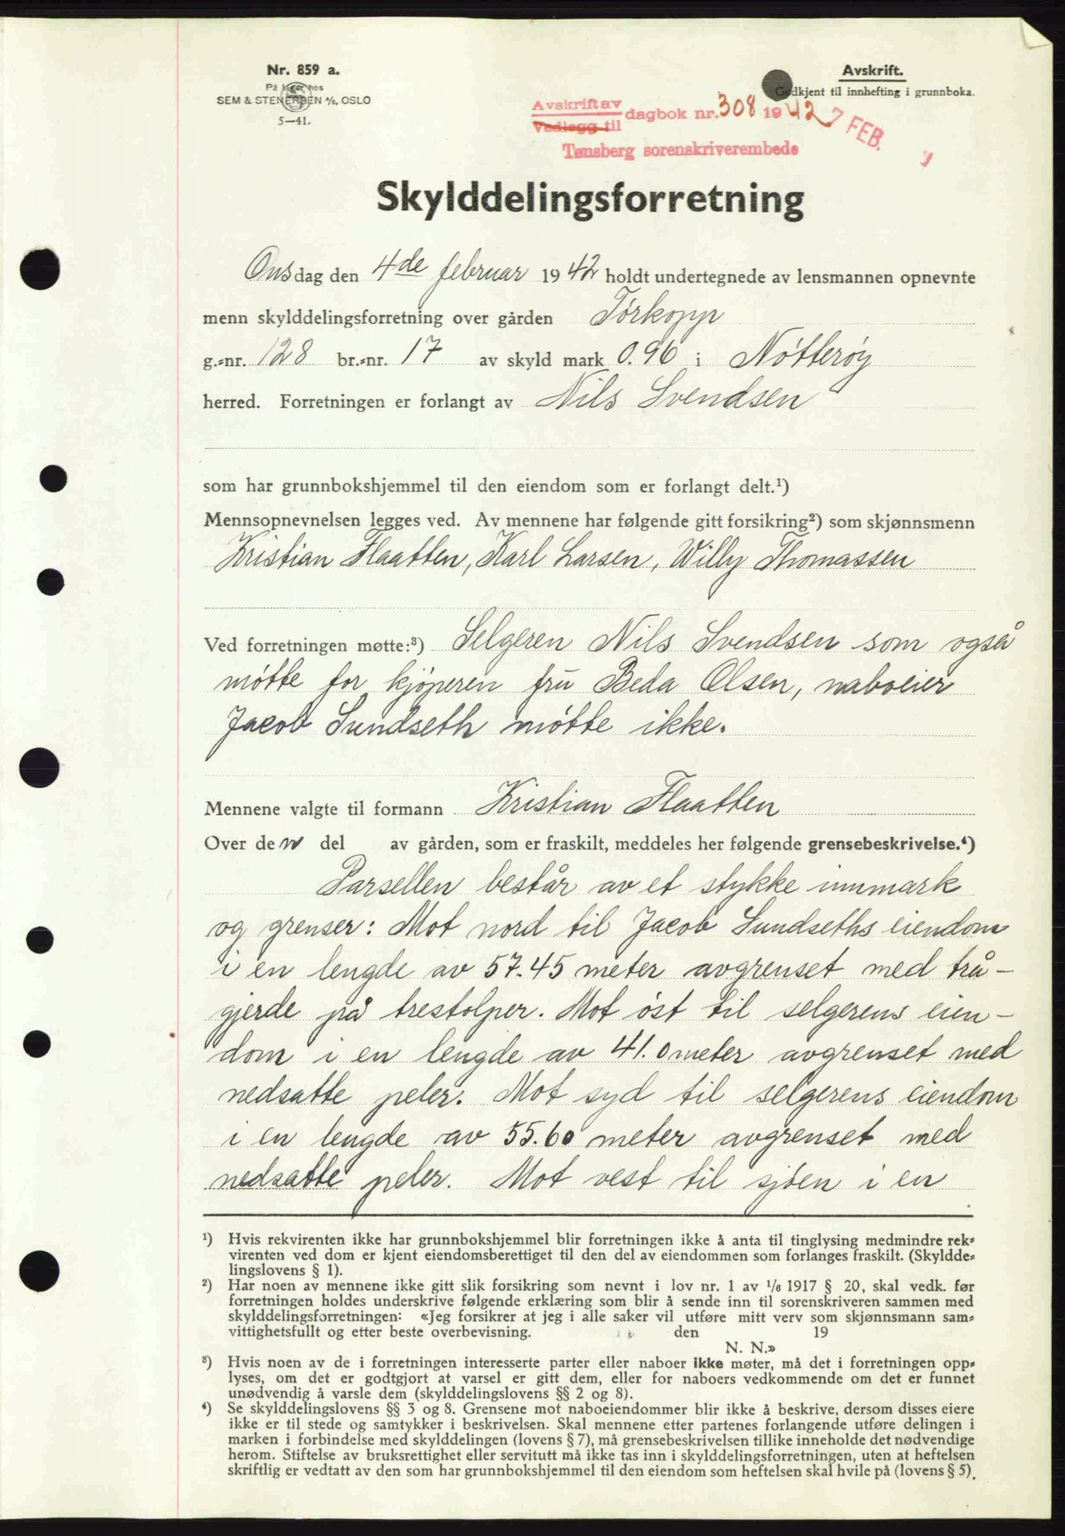 Nr. 859 a.
På lager hos
SEM & STENERSEN A/S, OSLO
5—41.
Avskrift.
Godkjent til innhefting i grunnboka.
Avskrift av
Vedlegg til dagbok nr. 308 1942 7 FEB.
Tønsberg sorenskriverembede
Skylddelingsforretning
Onsdag den 4de februar 1942 holdt undertegnede av lensmannen opnevnte
menn skylddelingsforretning over gården Tørkopp
g.-nr. 128 br.-nr. 17 av skyld mark 0.96 i Nötteröy
herred. Forretningen er forlangt av Nils Svendsen
som har grunnbokshjemmel til den eiendom som er forlangt delt.¹)
Mennsopnevnelsen legges ved. Av mennene har følgende gitt forsikring²) som skjønnsmenn
Kristian Flaatten, Karl Larsen, Willy Thomassen
Ved forretningen møtte:³) Selgeren Nils Svendsen som også
mötte for kjöperen fru Beda Olsen, naboeier
Jacob Sundseth mötte ikke.
Mennene valgte til formann Kristian Flaatten
Over den del av gården, som er fraskilt, meddeles her følgende grensebeskrivelse.⁴)
Parsellen består av et stykke innmark
og grenser: Mot nord til Jacob Sundseths eiendom
i en lengde av 57.45 meter avgrenset med trå-
gjerde på trestolper. Mot öst til selgerens eien-
dom i en lengde av 41.0 meter avgrenset med
nedsatte peler. Mot syd til selgerens eiendom
i en lengde av 55.60 meter avgrenset med
nedsatte peler. Mot vest til sjöen i en
¹) Hvis rekvirenten ikke har grunnbokshjemmel blir forretningen ikke å anta til tinglysing medmindre rek-
virenten ved dom er kjent eiendomsberettiget til den del av eiendommen som forlanges fraskilt. (Skyldde-
lingslovens § 1).
²) Har noen av mennene ikke gitt slik forsikring som nevnt i lov nr. 1 av 1/6 1917 § 20, skal vedk. før
forretningen holdes underskrive følgende erklæring som blir å sende inn til sorenskriveren sammen med
skylddelingsforretningen: «Jeg forsikrer at jeg i alle saker vil utføre mitt verv som skjønnsmann sam-
vittighetsfullt og etter beste overbevisning. den 19
N. N.»
³) Hvis noen av de i forretningen interesserte parter eller naboer ikke møter, må det i forretningen opp-
lyses, om det er godtgjort at varsel er gitt dem, eller for naboers vedkommende om det er funnet
unødvendig å varsle dem (skylddelingslovens §§ 2 og 8).
⁴) Se skylddelingslovens §§ 3 og 8. Grensene mot naboeiendommer blir ikke å beskrive, dersom disses eiere
ikke er til stede og samtykker i beskrivelsen. Skal mennene etter partenes forlangende utføre delingen i
marken i forbindelse med skylddelingen (lovens § 7), må grensebeskrivelsen tillike inneholde det nødvendige
herom. Stiftelse av bruksrettighet eller servitutt må ikke tas inn i skylddelingsforretningen, uten at heftelsen
skriftlig er vedtatt av den som har grunnbokshjemmel til den eiendom som heftelsen skal hvile på (lovens § 5).